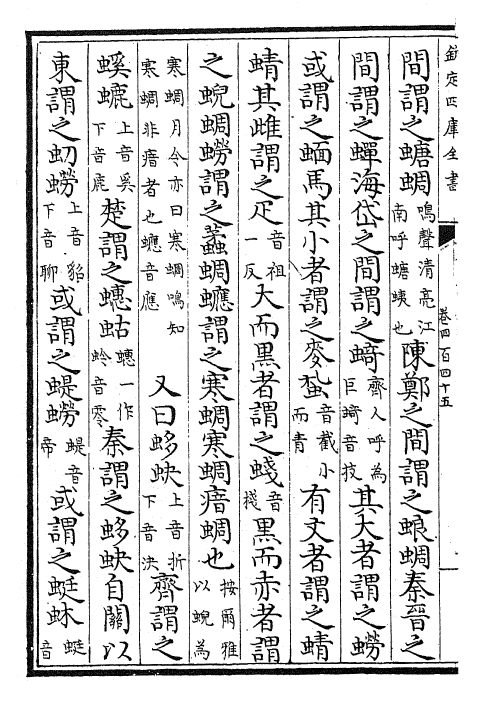 欽定四庫全書
卷四百四十五
間謂之螗蜩鳴聲清亮江南呼螗蛦也陳鄭之間謂之蜋蜩秦晉之
間謂之蟬海岱之間謂之䗁齊人呼為巨䗁音技其大者謂之蟧
或謂之蝒馬其小者謂之麥蚻音截小而青有文者謂之蜻
蜻其雌謂之疋音祖一反大而黑者謂之䗃音棧黑而赤者謂
之蜺蜩蟧謂之蓋蜩蟅謂之寒蜩寒蜩瘖蜩也按爾雅以蜺為
寒蜩月令亦曰寒蜩鳴知寒蜩非瘖者也䗲音應又曰蛥蚗上音折下音決齊謂之
螇螰上音奚下音鹿楚謂之蟪蛄蟪一作蛉音零秦謂之蛥蚗自關以
東謂之虭蟧上音貂下音聊或謂之蝭蟧蝭音帝或謂之蜓蚞蜓音